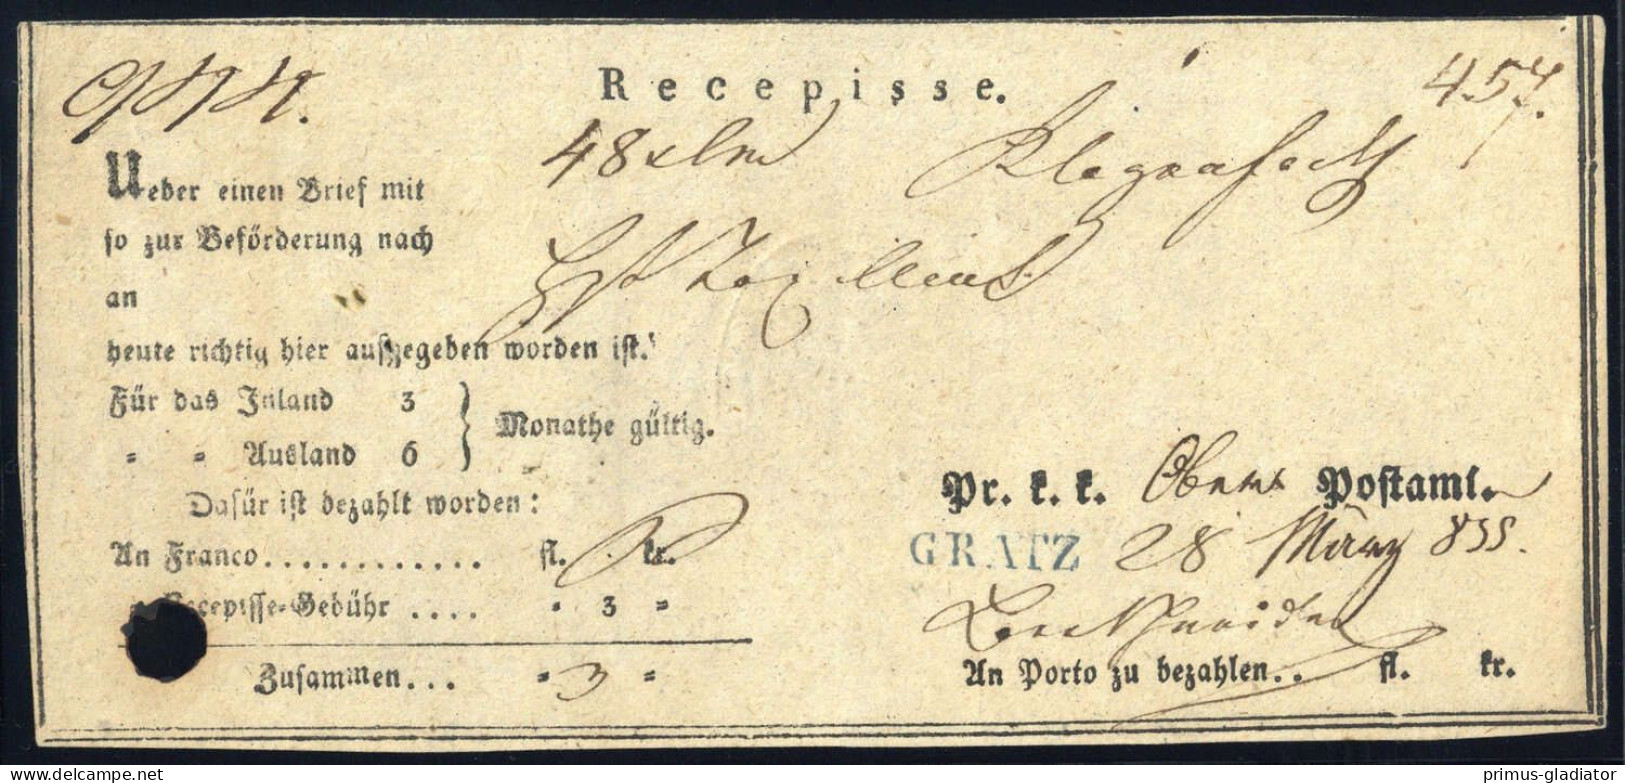 Recepisse.
457.
48
Ueber einen Brief mit
so zur Beförderung nach
an
heute richtig hier aufgegeben worden ist.
Für das Inland 3
" " Ausland 6
Monathe gültig.
Dafür ist bezahlt worden:
An Franco............ fl. kr.
" Recepisse-Gebühr .... " 3 "
Zusammen... " 3 "
Pr. k. k. Ober Postamt.
GRATZ 28 März 855.
An Porto zu bezahlen.. fl. kr.
delcampe.net
primus-gladiator